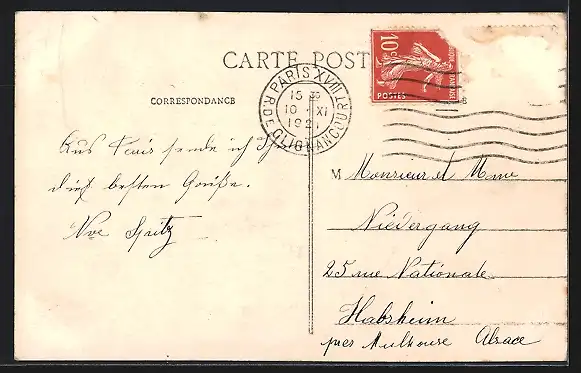 CARTE POST
CORRESPONDANCE
PARIS XVIII
R. DE CLIGNANCOURT
15 30
10 XI
1921
10c
POSTES
Aus Paris sende ich
die besten Grüße.
Vve Spitz
M Monsieur et Mme
Niedergang
25 rue Nationale
Habsheim
près Mulhouse Alsace